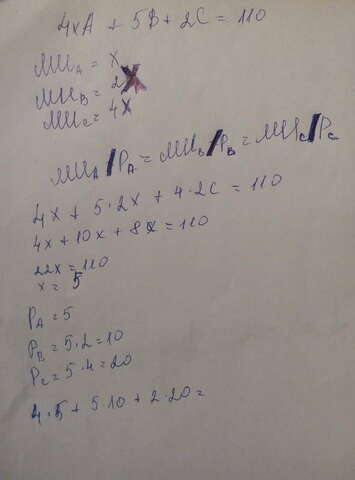 4xA + 5B + 2C = 110
MU_A = X
MU_B = 2X
MU_C = 4X
MU_A/P_A = MU_B/P_B = MU_C/P_C
4x + 5·2x + 4·2C = 110
4x + 10x + 8x = 110
22x = 110
x = 5
P_A = 5
P_B = 5·2 = 10
P_C = 5·4 = 20
4·5 + 5·10 + 2·20 =